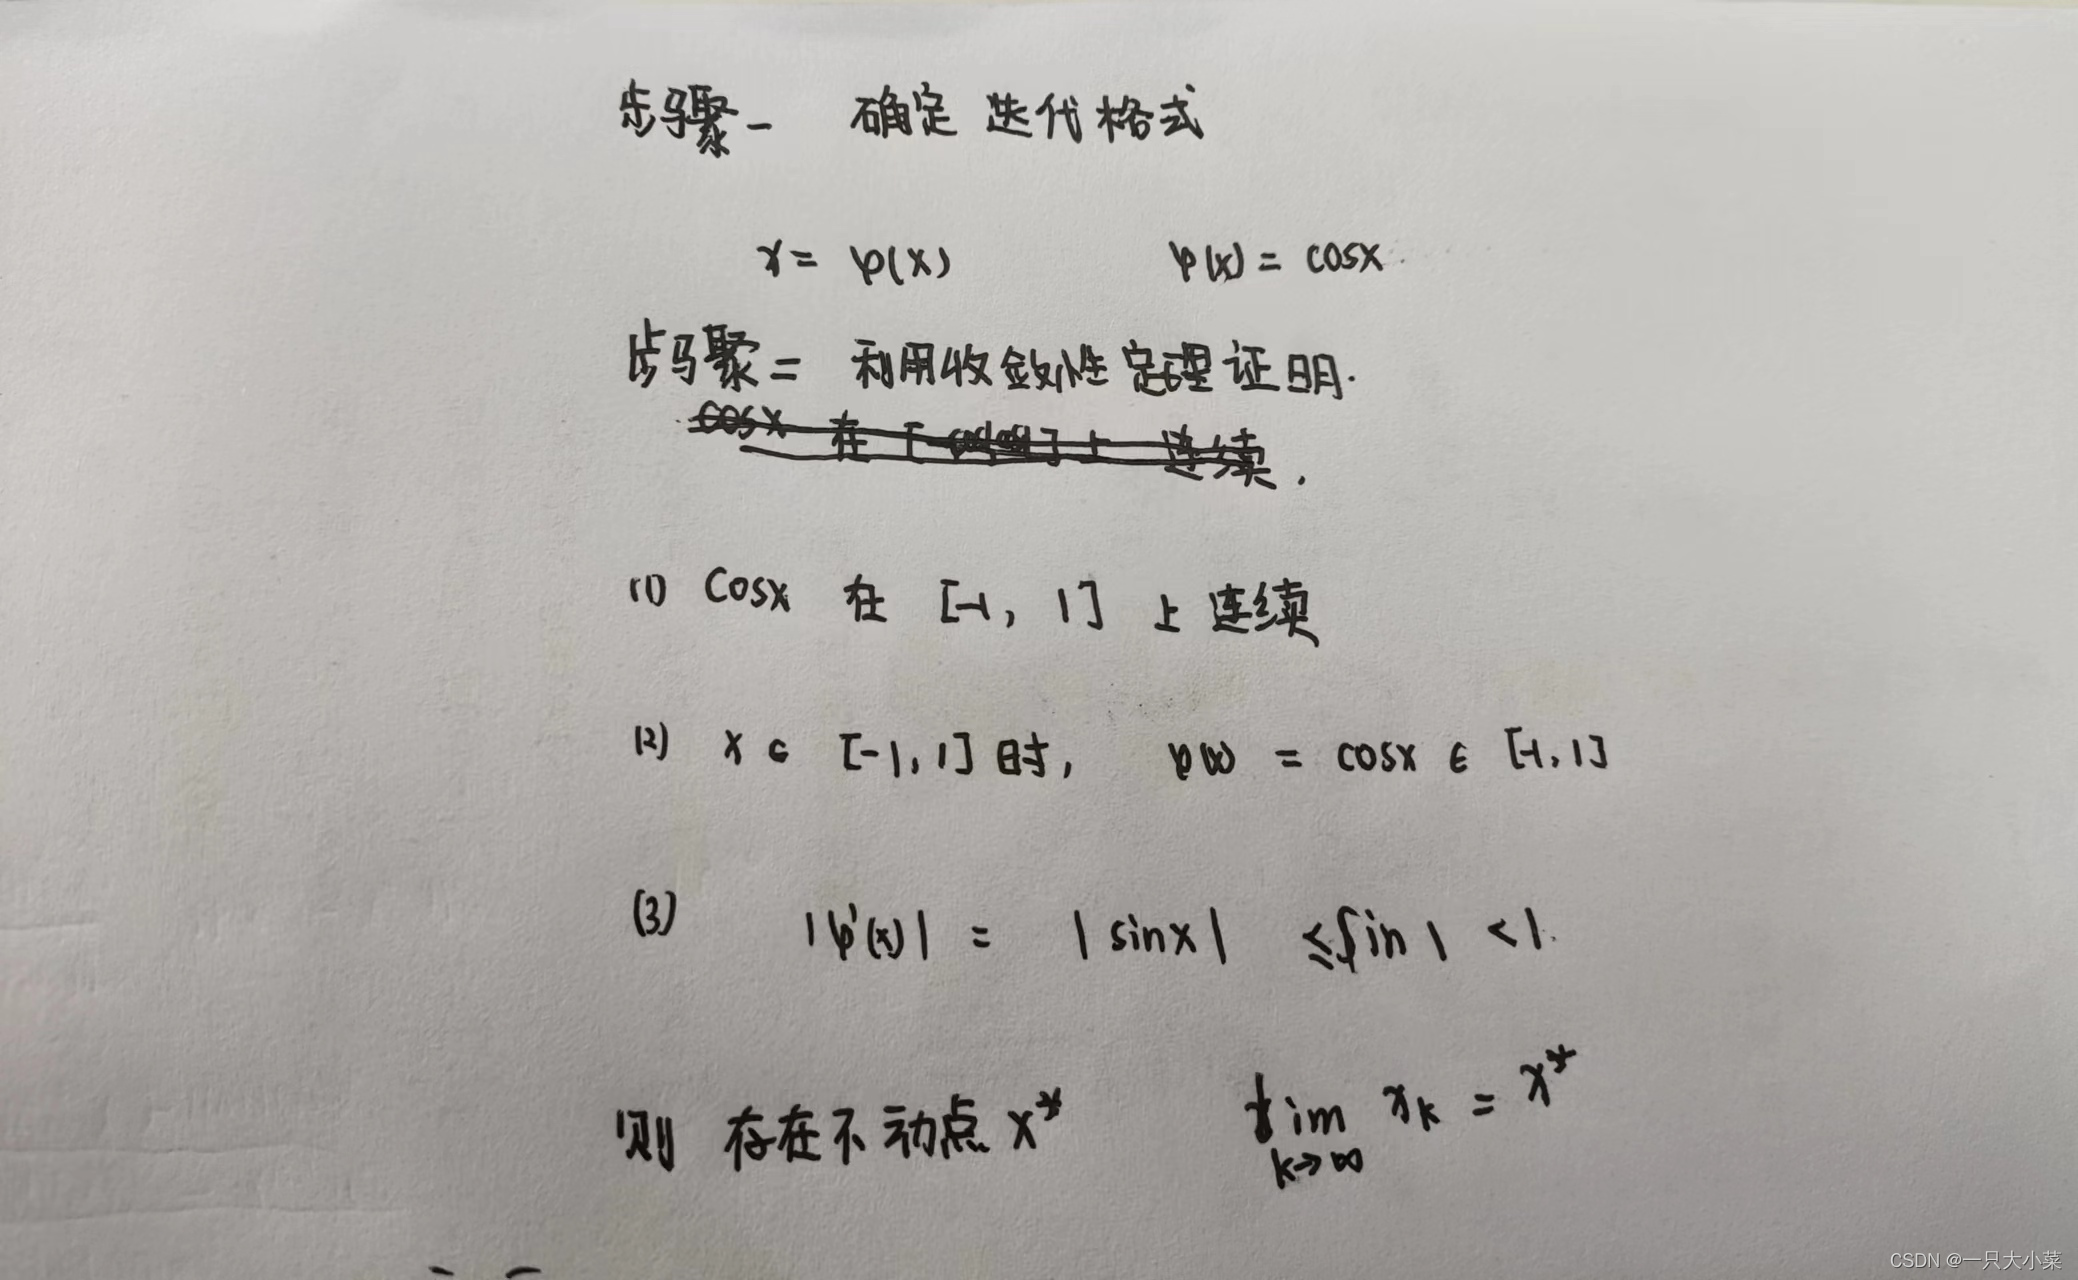 步骤一 确定 迭代格式
x = φ(x) φ(x) = cosx
步骤二 利用收敛性定理证明.
cosx 在 [ ] 上 连续.
(1) Cosx 在 [-1, 1] 上连续
(2) x ∈ [-1, 1] 时, φ(x) = cosx ∈ [-1, 1]
(3) |φ'(x)| = |sinx| ≤ sin1 < 1.
则 存在不动点 x* lim x_k = x*
k→∞
CSDN @一只大小菜